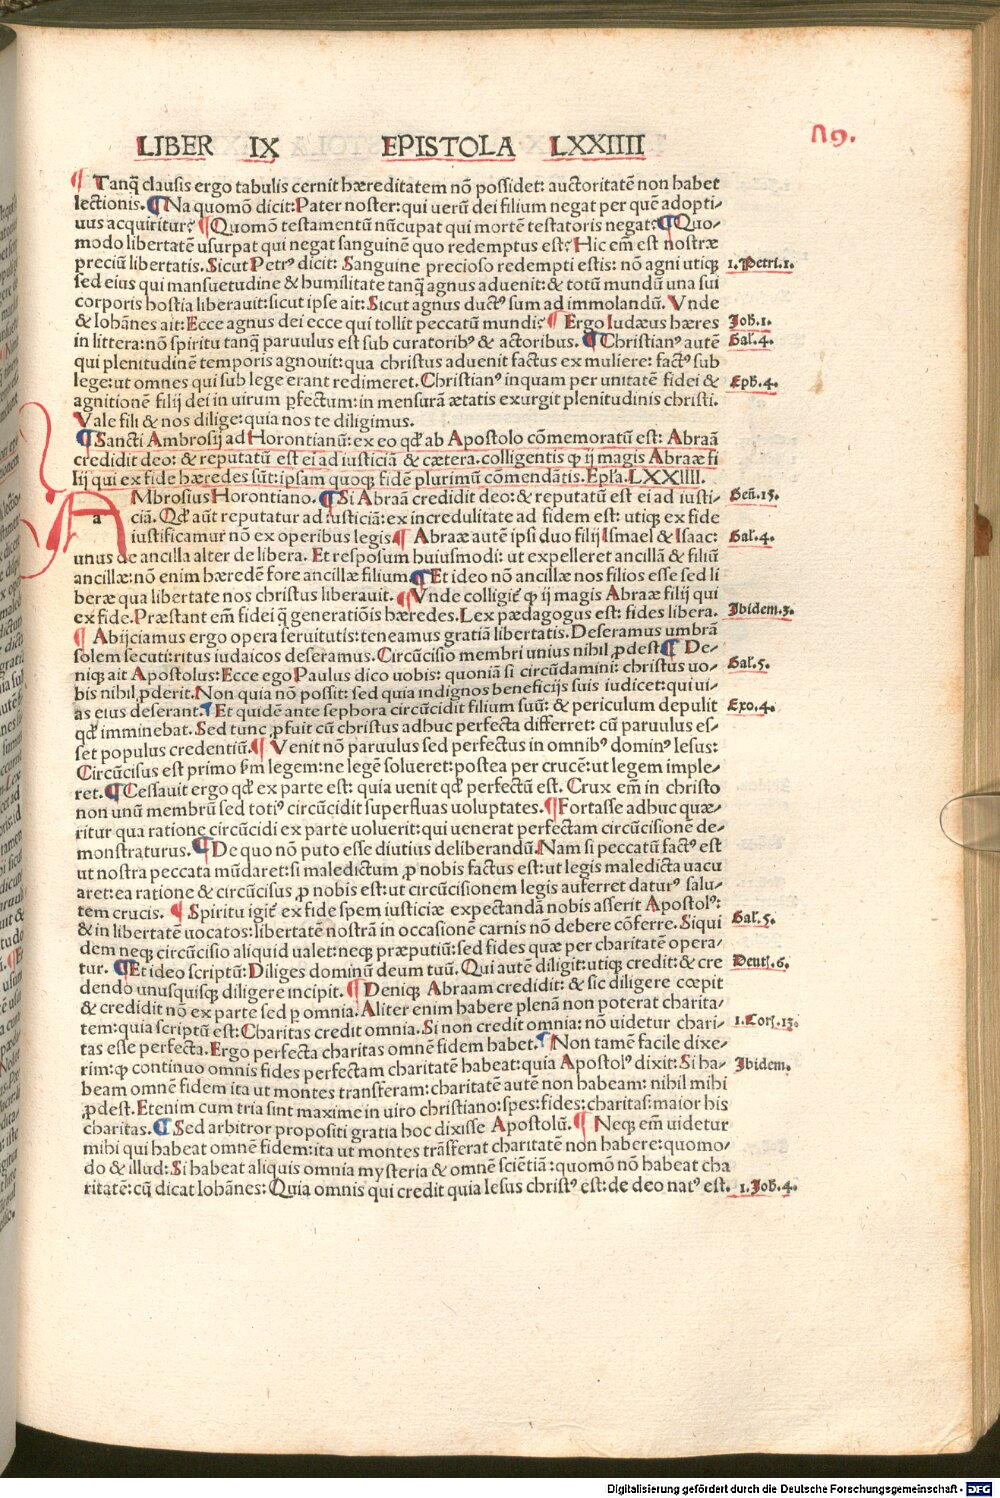 LIBER IX EPISTOLA LXXIIII
¶ Tanq̃ clausis ergo tabulis cernit hæreditatem nõ possidet: auctoritatẽ non habet
lectionis. ¶Na quomõ dicit: Pater noster: qui uerũ dei filium negat per quẽ adopti-
uus acquiritur? ¶Quomõ testamentũ nũcupat qui mortẽ testatoris negat? ¶Quo-
modo libertatẽ usurpat qui negat sanguinẽ quo redemptus est? Hic em̃ est nostræ
preciũ libertatis. Sicut Petrꝰ dicit: Sanguine precioso redempti estis: nõ agni utiqꝫ 1. Petri. 1.
sed eius qui mansuetudine & humilitate tanq̃ agnus aduenit: & totũ mundũ una sui
corporis hostia liberauit: sicut ipse ait: Sicut agnus ductꝰ sum ad immolandũ. Vnde
& Iohãnes ait: Ecce agnus dei ecce qui tollit peccatũ mundi? ¶ Ergo Iudæus hæres Joh̃. 1.
in littera: nõ spiritu tanq̃ paruulus est sub curatoribꝰ & actoribus. ¶Christianꝰ autẽ Gal. 4.
qui plenitudinẽ temporis agnouit: qua christus aduenit factus ex muliere: factꝰ sub
lege: ut omnes qui sub lege erant redimeret. Christianꝰ inquam per unitatẽ fidei & Eph̃. 4.
agnitionẽ filij dei in uirum ꝑfectum: in mensurã ætatis exurgit plenitudinis christi.
Vale fili & nos dilige: quia nos te diligimus.
¶Sancti Ambrosij ad Horontianũ: ex eo qđ ab Apostolo cõmemoratũ est: Abraã
credidit deo: & reputatũ est ei ad iusticiã & cætera. colligentis ꝙ ij magis Abraæ fi
lij qui ex fide hæredes sũt: ipsam quoqꝫ fidẽ plurimũ cõmendãtis. Epl̃a. LXXIIII.
AMbrosius Horontiano. ¶Si Abraã credidit deo: & reputatũ est ei ad iusti- Geñ. 15.
a ciã. Qđ aũt reputatur ad iusticiã: ex incredulitate ad fidem est: utiqꝫ ex fide
iustificamur nõ ex operibus legis. ¶ Abraæ autẽ ipsi duo filij Ismael & Isaac: Gal. 4.
unus de ancilla alter de libera. Et resposum huiusmodi: ut expelleret ancillã & filiũ
ancillæ: nõ enim hæredẽ fore ancillæ filium. ¶Et ideo nõ ancillæ nos filios esse sed li
beræ qua libertate nos christus liberauit. ¶Vnde colligit᷑ ꝙ ij magis Abraæ filij qui
ex fide. Præstant em̃ fidei q̃ generatiõis hæredes. Lex pædagogus est: fides libera. Jbidem. 3.
¶ Abijciamus ergo opera seruitutis: teneamus gratiã libertatis. Deseramus umbrã
solem secuti: ritus iudaicos deseramus. Circũcisio membri unius nihil ꝓdest. ¶ De-
niqꝫ ait Apostolus: Ecce ego Paulus dico uobis: quoniã si circũdamini: christus uo- Gal. 5.
bis nihil ꝓderit. Non quia nõ possit: sed quia indignos beneficijs suis iudicet: qui ui-
as eius deserant. ¶Et quidẽ ante sephora circũcidit filium suũ: & periculum depulit Exo. 4.
qđ imminebat. Sed tunc ꝓfuit cũ christus adhuc perfecta differret: cũ paruulus es-
set populus credentiũ. ¶ Venit nõ paruulus sed perfectus in omnibꝰ dominꝰ Iesus:
Circũcisus est primo ẜm legem: ne legẽ solueret: postea per crucẽ: ut legem imple-
ret. ¶Cessauit ergo qđ ex parte est: quia uenit qđ perfectũ est. Crux em̃ in christo
non unũ membrũ sed totiꝰ circũcidit superfluas uoluptates. ¶Fortasse adhuc quæ-
ritur qua ratione circũcidi ex parte uoluerit: qui uenerat perfectam circũcisionẽ de-
monstraturus. ¶De quo nõ puto esse diutius deliberandũ. Nam si peccatũ factꝰ est
ut nostra peccata mũdaret: si maledictum ꝓ nobis factus est: ut legis maledicta uacu
aret: ea ratione & circũcisus ꝓ nobis est: ut circũcisionem legis auferret daturꝰ salu-
tem crucis. ¶ Spiritu igit᷑ ex fide spem iusticiæ expectandã nobis asserit Apostolꝰ:
& in libertatẽ uocatos: libertatẽ nostrã in occasionẽ carnis nõ debere cõferre. Siqui Gal. 5.
dem neqꝫ circũcisio aliquid ualet: neqꝫ præputiũ: sed fides quæ per charitatẽ opera-
tur. ¶Et ideo scriptũ: Diliges dominũ deum tuũ. Qui autẽ diligit: utiqꝫ credit: & cre Deut. 6.
dendo unusquisqꝫ diligere incipit. ¶Deniqꝫ Abraam credidit: & sic diligere cœpit
& credidit nõ ex parte sed ꝑ omnia. Aliter enim habere plenã non poterat charita-
tem: quia scriptũ est: Charitas credit omnia. Si non credit omnia: nõ uidetur chari- 1. Cor. 13.
tas esse perfecta. Ergo perfecta charitas omnẽ fidem habet. ¶Non tamẽ facile dixe-
rim: ꝙ continuo omnis fides perfectam charitatẽ habeat: quia Apostolꝰ dixit: Si ha- Jbidem.
beam omnẽ fidem ita ut montes transferam: charitatẽ autẽ non habeam: nihil mihi
ꝓdest. Etenim cum tria sint maxime in uiro christiano: spes: fides: charitas: maior his
charitas. ¶ Sed arbitror propositi gratia hoc dixisse Apostolũ. ¶ Neqꝫ em̃ uidetur
mihi qui habeat omnẽ fidem: ita ut montes trãsferat charitatẽ non habere: quomo-
do & illud: Si habeat aliquis omnia mysteria & omnẽ sciẽtiã: quomõ nõ habeat cha
ritatẽ: cũ dicat Iohãnes: Quia omnis qui credit quia Iesus christꝰ est: de deo natꝰ est. 1. Joh̃. 4.
Digitalisierung gefördert durch die Deutsche Forschungsgemeinschaft - DFG